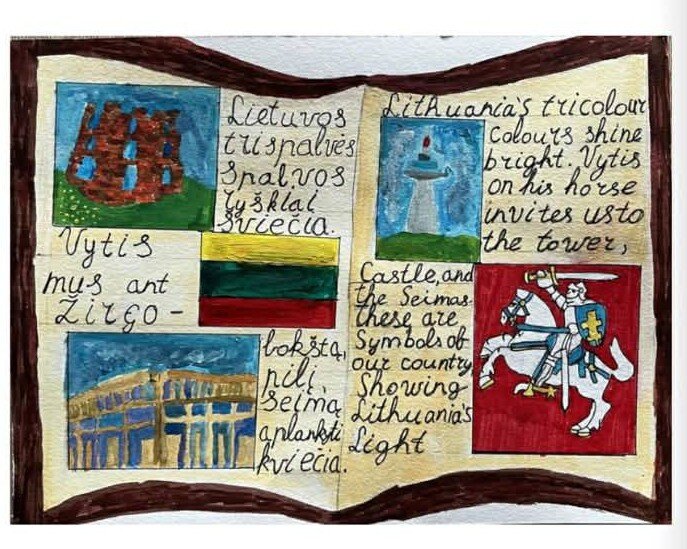 Lietuvos
trispalvės
Spalvos
ryškiai
šviečia.
Vytis
mus ant
Žirgo -
bokštą,
pilį,
Seimą
aplankyti
kviečia.
Lithuania's tricolour
Colours shine
bright. Vytis
on his horse
invites us to
the tower,
Castle, and
the Seimas-
these are
Symbols of
our country
Showing
Lithuania's
Light